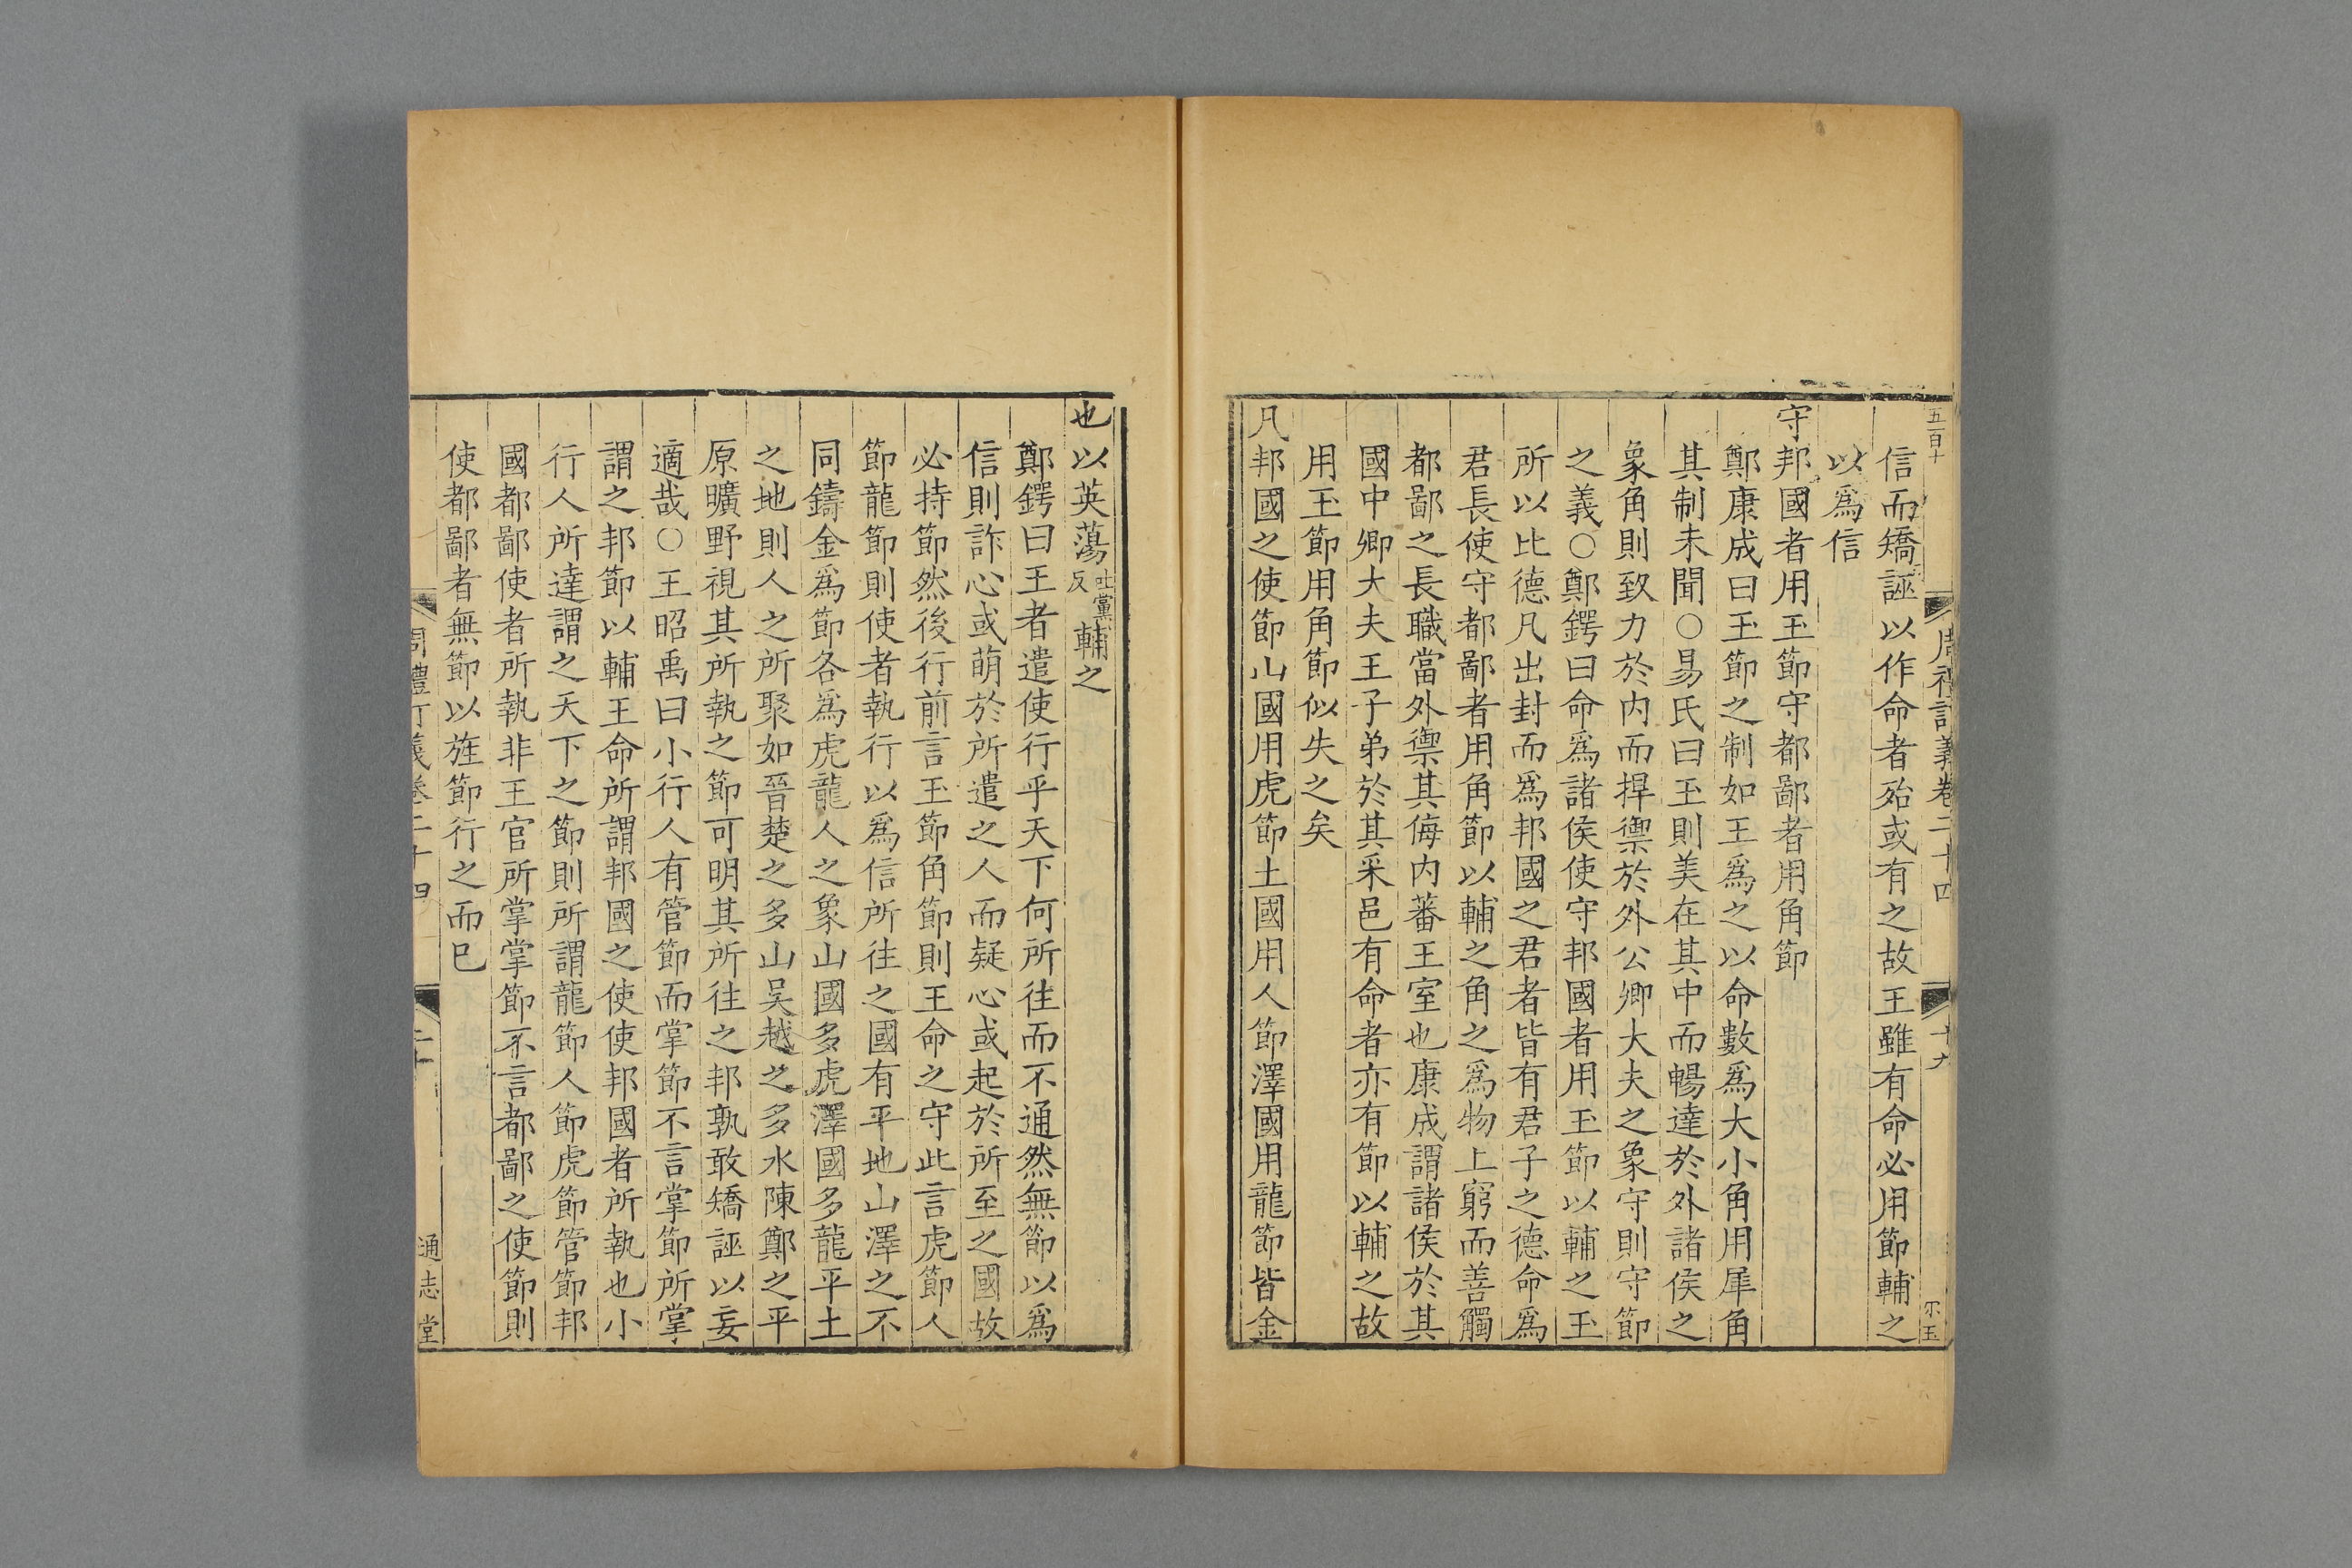 五百十
周禮訂義卷二十四
十九
信而矯誣以作命者殆或有之故王雖有命必用節輔之
以爲信
守邦國者用玉節守都鄙者用角節
鄭康成曰玉節之制如王爲之以命數爲大小角用犀角
其制未聞○易氏曰玉則美在其中而暢達於外諸侯之
象角則致力於内而捍禦於外公卿大夫之象守則守節
之義○鄭鍔曰命爲諸侯使守邦國者用玉節以輔之玉
所以比德凡出封而爲邦國之君者皆有君子之德命爲
君長使守都鄙者用角節以輔之角之爲物上窮而善觸
都鄙之長職當外禦其侮内蕃王室也康成謂諸侯於其
國中卿大夫王子弟於其采邑有命者亦有節以輔之故
用玉節用角節似失之矣
凡邦國之使節山國用虎節土國用人節澤國用龍節皆金
也以英蕩吐黨反輔之
鄭鍔曰王者遣使行乎天下何所往而不通然無節以爲
信則詐心或萌於所遣之人而疑心或起於所至之國故
必持節然後行前言玉節角節則王命之守此言虎節人
節龍節則使者執行以爲信所往之國有平地山澤之不
同鑄金爲節各爲虎龍人之象山國多虎澤國多龍平土
之地則人之所聚如晉楚之多山吳越之多水陳鄭之平
原曠野視其所執之節可明其所往之邦孰敢矯誣以妄
適哉○王昭禹曰小行人有管節而掌節不言掌節所掌
謂之邦節以輔王命所謂邦國之使使邦國者所執也小
行人所達謂之天下之節則所謂龍節人節虎節管節邦
國都鄙使者所執非王官所掌掌節不言都鄙之使節則
使都鄙者無節以旌節行之而已
周禮訂義卷二十四
二十
通志堂